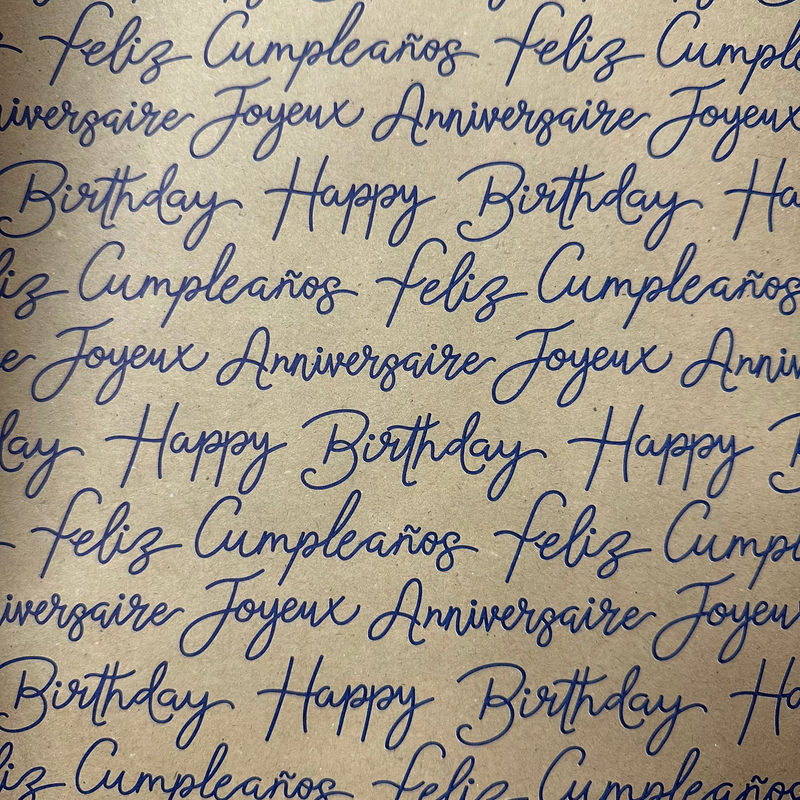 feliz Cumpleaños feliz Cumple
niversaire Joyeux Anniversaire Joyeux
Birthday Happy Birthday Ha
liz Cumpleaños feliz Cumpleaños
e Joyeux Anniversaire Joyeux Anniv
day Happy Birthday Happy B
feliz Cumpleaños feliz Cumpl
iversaire Joyeux Anniversaire Joyeu
Birthday Happy Birthday Ha
liz Cumpleaños feliz Cumpleaños